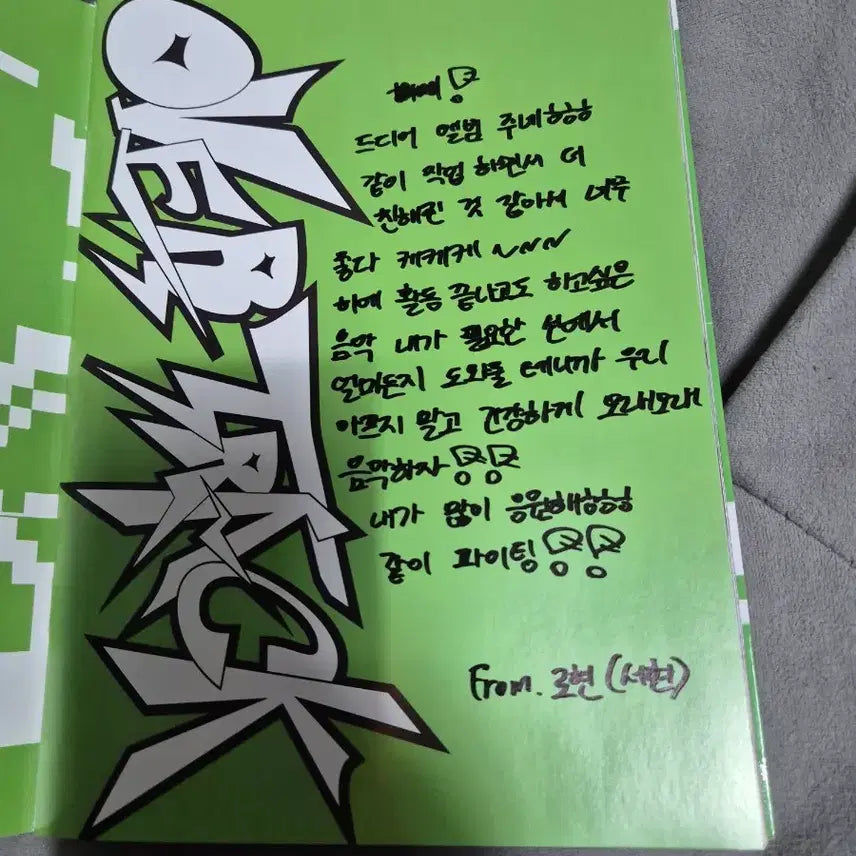 OVER TRACK
하예!
드디어 앨범 주네ㅎㅎㅎ
같이 작업 하면서 더
친해진 것 같아서 너무
좋다 케케케 ~~~
하예 활동 끝나고도 하고싶은
음악 내가 필요한 씬에서
얼마든지 도와줄 테니까 우리
아프지 말고 건강하게 오래오래
음악하자!!
내가 많이 응원해ㅎㅎㅎ
같이 파이팅!!
From. 로현(세현)